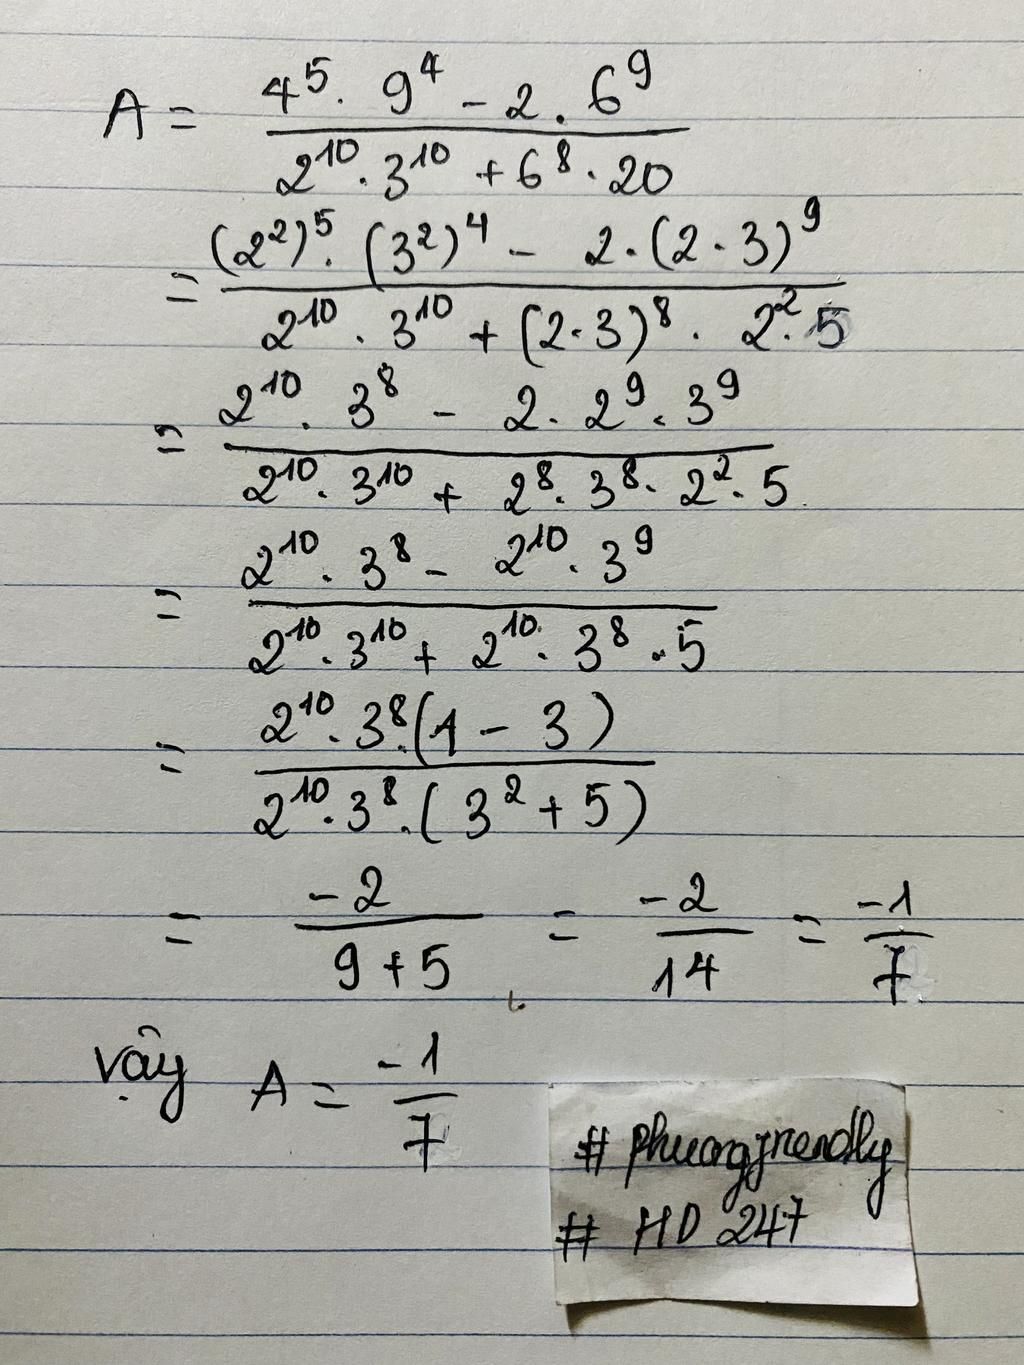 A = (4⁵ . 9⁴ - 2 . 6⁹) / (2¹⁰ . 3¹⁰ + 6⁸ . 20)
= ((2²)⁵ . (3²)⁴ - 2 . (2 . 3)⁹) / (2¹⁰ . 3¹⁰ + (2 . 3)⁸ . 2² . 5)
= (2¹⁰ . 3⁸ - 2 . 2⁹ . 3⁹) / (2¹⁰ . 3¹⁰ + 2⁸ . 3⁸ . 2² . 5)
= (2¹⁰ . 3⁸ - 2¹⁰ . 3⁹) / (2¹⁰ . 3¹⁰ + 2¹⁰ . 3⁸ . 5)
= (2¹⁰ . 3⁸ . (1 - 3)) / (2¹⁰ . 3⁸ . (3² + 5))
= -2 / (9 + 5) = -2 / 14 = -1 / 7
Vậy A = -1 / 7
# phuongfriendly
# HD 247